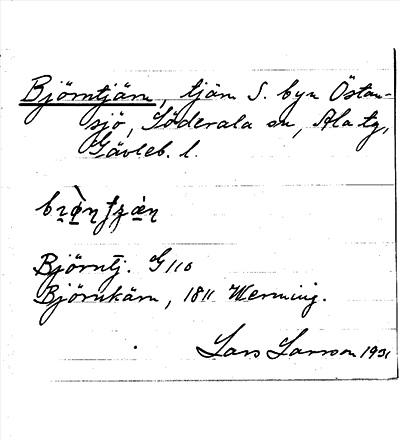 Björntjärn, tjärn S. byn Östan-
sjö, Söderala sn, Ala tg,
Gävleb. l.
Björntj. G110
Björnkärn, 1811 Werming.
Lars Larsson 1931